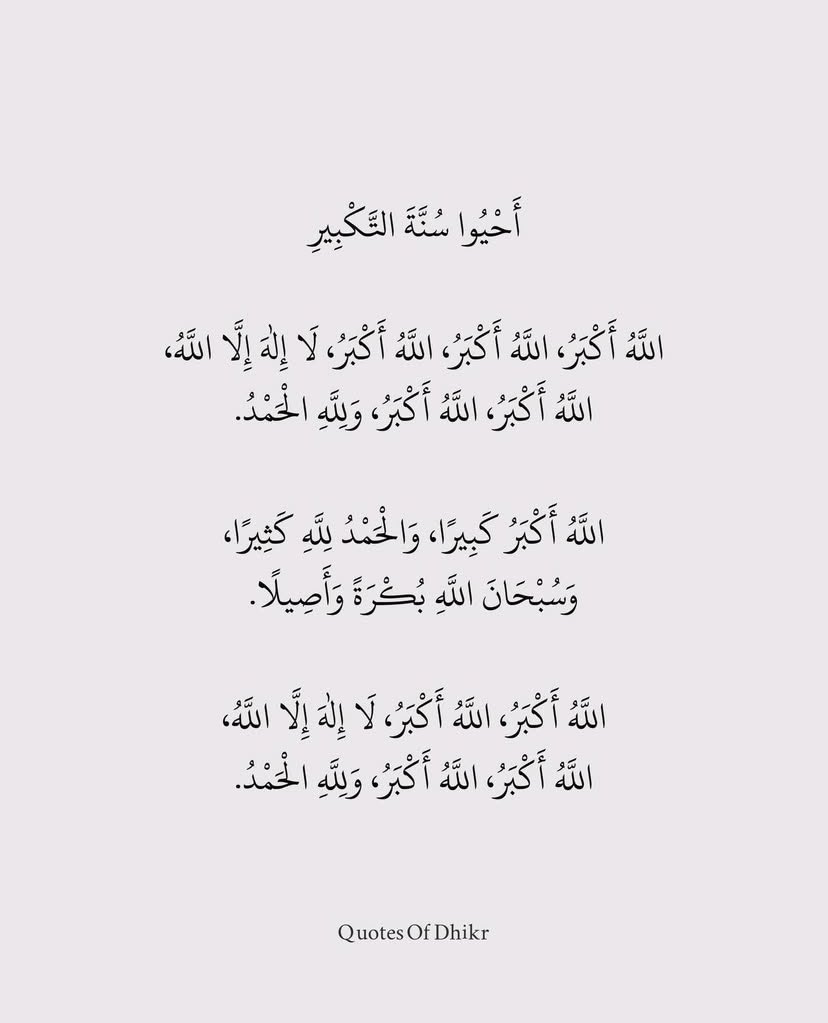 أَحْيُوا سُنَّةَ التَّكْبِيرِ
اللَّهُ أَكْبَرُ، اللَّهُ أَكْبَرُ، اللَّهُ أَكْبَرُ، لَا إِلٰهَ إِلَّا اللَّهُ،
اللَّهُ أَكْبَرُ، اللَّهُ أَكْبَرُ، وَلِلَّهِ الْحَمْدُ.
اللَّهُ أَكْبَرُ كَبِيرًا، وَالْحَمْدُ لِلَّهِ كَثِيرًا،
وَسُبْحَانَ اللَّهِ بُكْرَةً وَأَصِيلًا.
اللَّهُ أَكْبَرُ، اللَّهُ أَكْبَرُ، لَا إِلٰهَ إِلَّا اللَّهُ،
اللَّهُ أَكْبَرُ، اللَّهُ أَكْبَرُ، وَلِلَّهِ الْحَمْدُ.
Quotes Of Dhikr